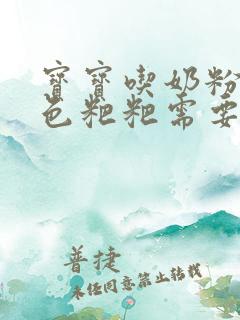 寶寶喫奶粉
色粑粑需要
普捷
未經同意禁止轉載